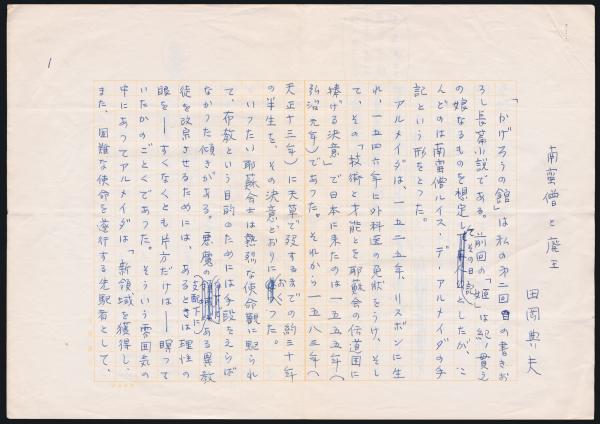 南蛮僧と廃王
田岡典夫
「かげろうの館」は私の第二回目の書きお
ろし長篇小説である。前回の「姫」は紀ノ貫之
の娘なるものを想定して、その日記としたが、こ
んどのは南蛮僧ルイス・デ・アルメイダの手
記という形をとった。
アルメイダは、一五二五年、リスボンに生
れ、一五四六年に外科医の免状をうけ、そし
て、その「技術と才能とを耶蘇会の伝道国に
捧げる決意」で日本に来たのは一五五五年(
弘治元年)であった。それから一五八三年(
天正十三年)に天草で歿するまでの約三十年
の半生を、その決意どおりにおくった。
いったい耶蘇会士は熱烈な使命観に駆られ
て、布教という目的のためには手段をえらば
なかった傾きがある。悪魔の支配下にある異教
徒を改宗させるためには、あるときは理性の
眼を――すくなくとも片方だけは――瞑って
いたかのごとくであった。そういう雰囲気の
中にあってアルメイダは「新領域を獲得し、
また、困難な使命を遂行する先駆者として、
1